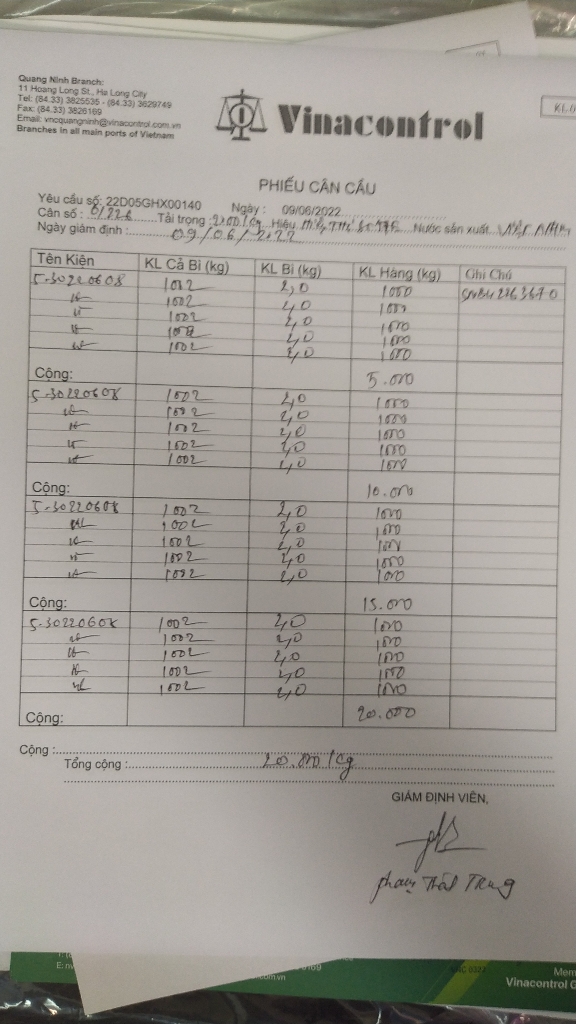 Quang Ninh Branch:
11 Hoang Long St., Ha Long City
Tel: (84.33) 3825535 - (84.33) 3829749
Fax: (84.33) 3826169
Email: vncquangninh@vinacontrol.com.vn
Branches in all main ports of Vietnam
Vinacontrol
PHIẾU CÂN CẨU
Yêu cầu số: 22D05GHX00140 Ngày: 09/06/2022
Cân số: Tải trọng: Hiệu Nước sản xuất
Ngày giám định: 09/06/2022
Tên Kiện KL Cả Bì (kg) KL Bì (kg) KL Hàng (kg) Ghi Chú
5-30220608 1002 2,0 1000
1002 2,0 1000
1002 2,0 1000
1002 2,0 1000
1002 2,0 1000
Cộng: 5.000
5-30220608 1002 2,0 1000
1002 2,0 1000
1002 2,0 1000
1002 2,0 1000
1002 2,0 1000
Cộng: 10.000
5-30220608 1002 2,0 1000
1002 2,0 1000
1002 2,0 1000
1002 2,0 1000
1002 2,0 1000
Cộng: 15.000
5-30220608 1002 2,0 1000
1002 2,0 1000
1002 2,0 1000
1002 2,0 1000
1002 2,0 1000
Cộng: 20.000
Cộng:
Tổng cộng: 20.000 kg
GIÁM ĐỊNH VIÊN,
Vinacontrol G